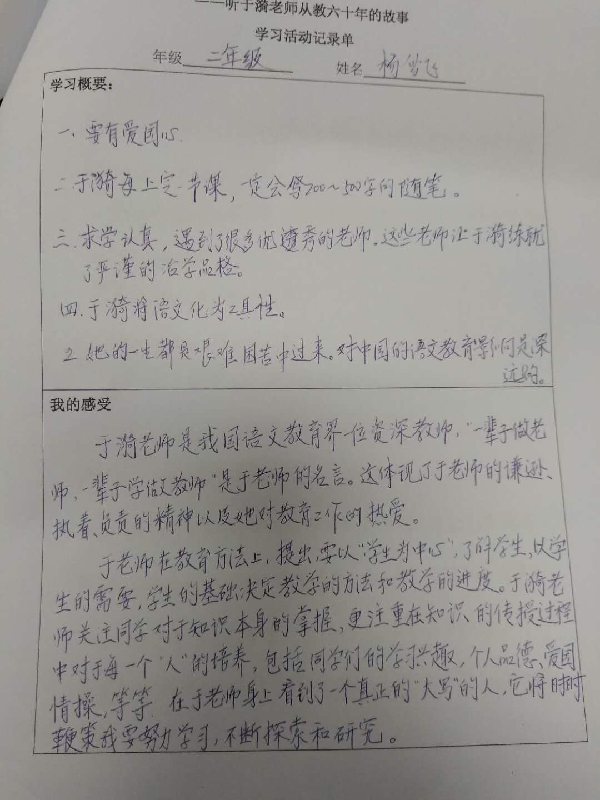 ——听于漪老师从教六十年的故事
学习活动记录单
年级 二年级 姓名 杨
学习概要：
一、要有爱国心
二、于漪每上完一节课，一定会写300～500字的随笔。
三、求学认真，遇到了很多优秀的老师。这些老师让于漪练就
了严谨的治学品格。
四、于漪将语文化为工具性。
她的一生都是艰难困苦中过来。对中国的语文教育影响是深
远的。
我的感受
于漪老师是我国语文教育界一位资深教师，“一辈子做老
师，一辈子学做教师”是于老师的名言。这体现了于老师的谦逊、
执着、负责的精神以及她对教育工作的热爱。
于老师在教育方法上，提出，要以“学生为中心”，了解学生，以学
生的需要，学生的基础决定教学的方法和教学的进度。于漪老
师关注同学对于知识本身的掌握，更注重在知识的传授过程
中对于每一个“人”的培养，包括同学们的学习兴趣，个人品德、爱国
情操，等等 在于老师身上看到了一个真正的“大写”的人，它将时时
鞭策我要努力学习，不断探索和研究。